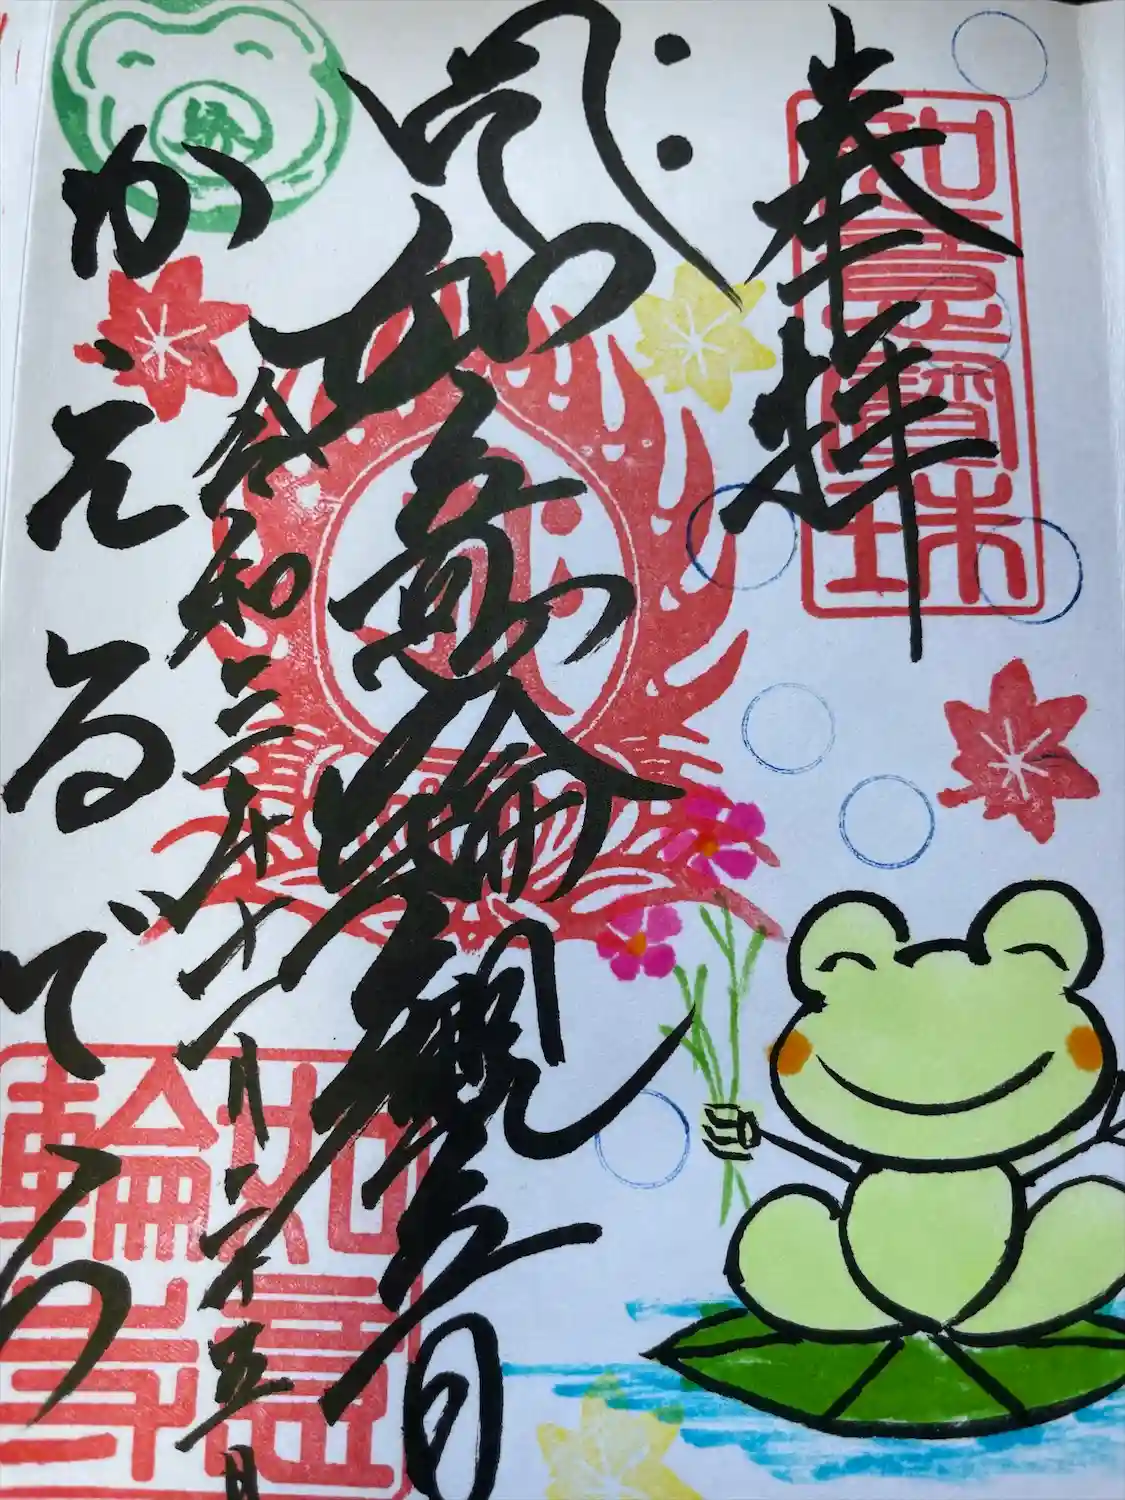 奉拝
如意寶珠
如意輪観音
令和三年十一月二十五日
かえるでら
縁
如意輪寺